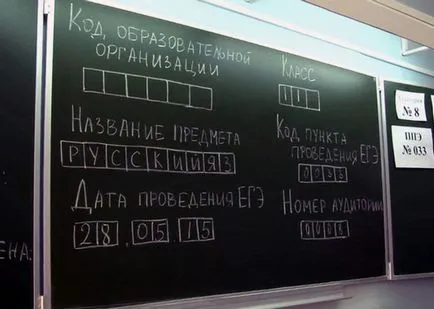 Код образовательной
организации
Класс
11
Название предмета
РУССКИЙ ЯЗ
Код пункта
проведения ЕГЭ
0033
Дата проведения ЕГЭ
28.05.15
Номер аудитории
0008
№ 8
ППЭ
№ 033